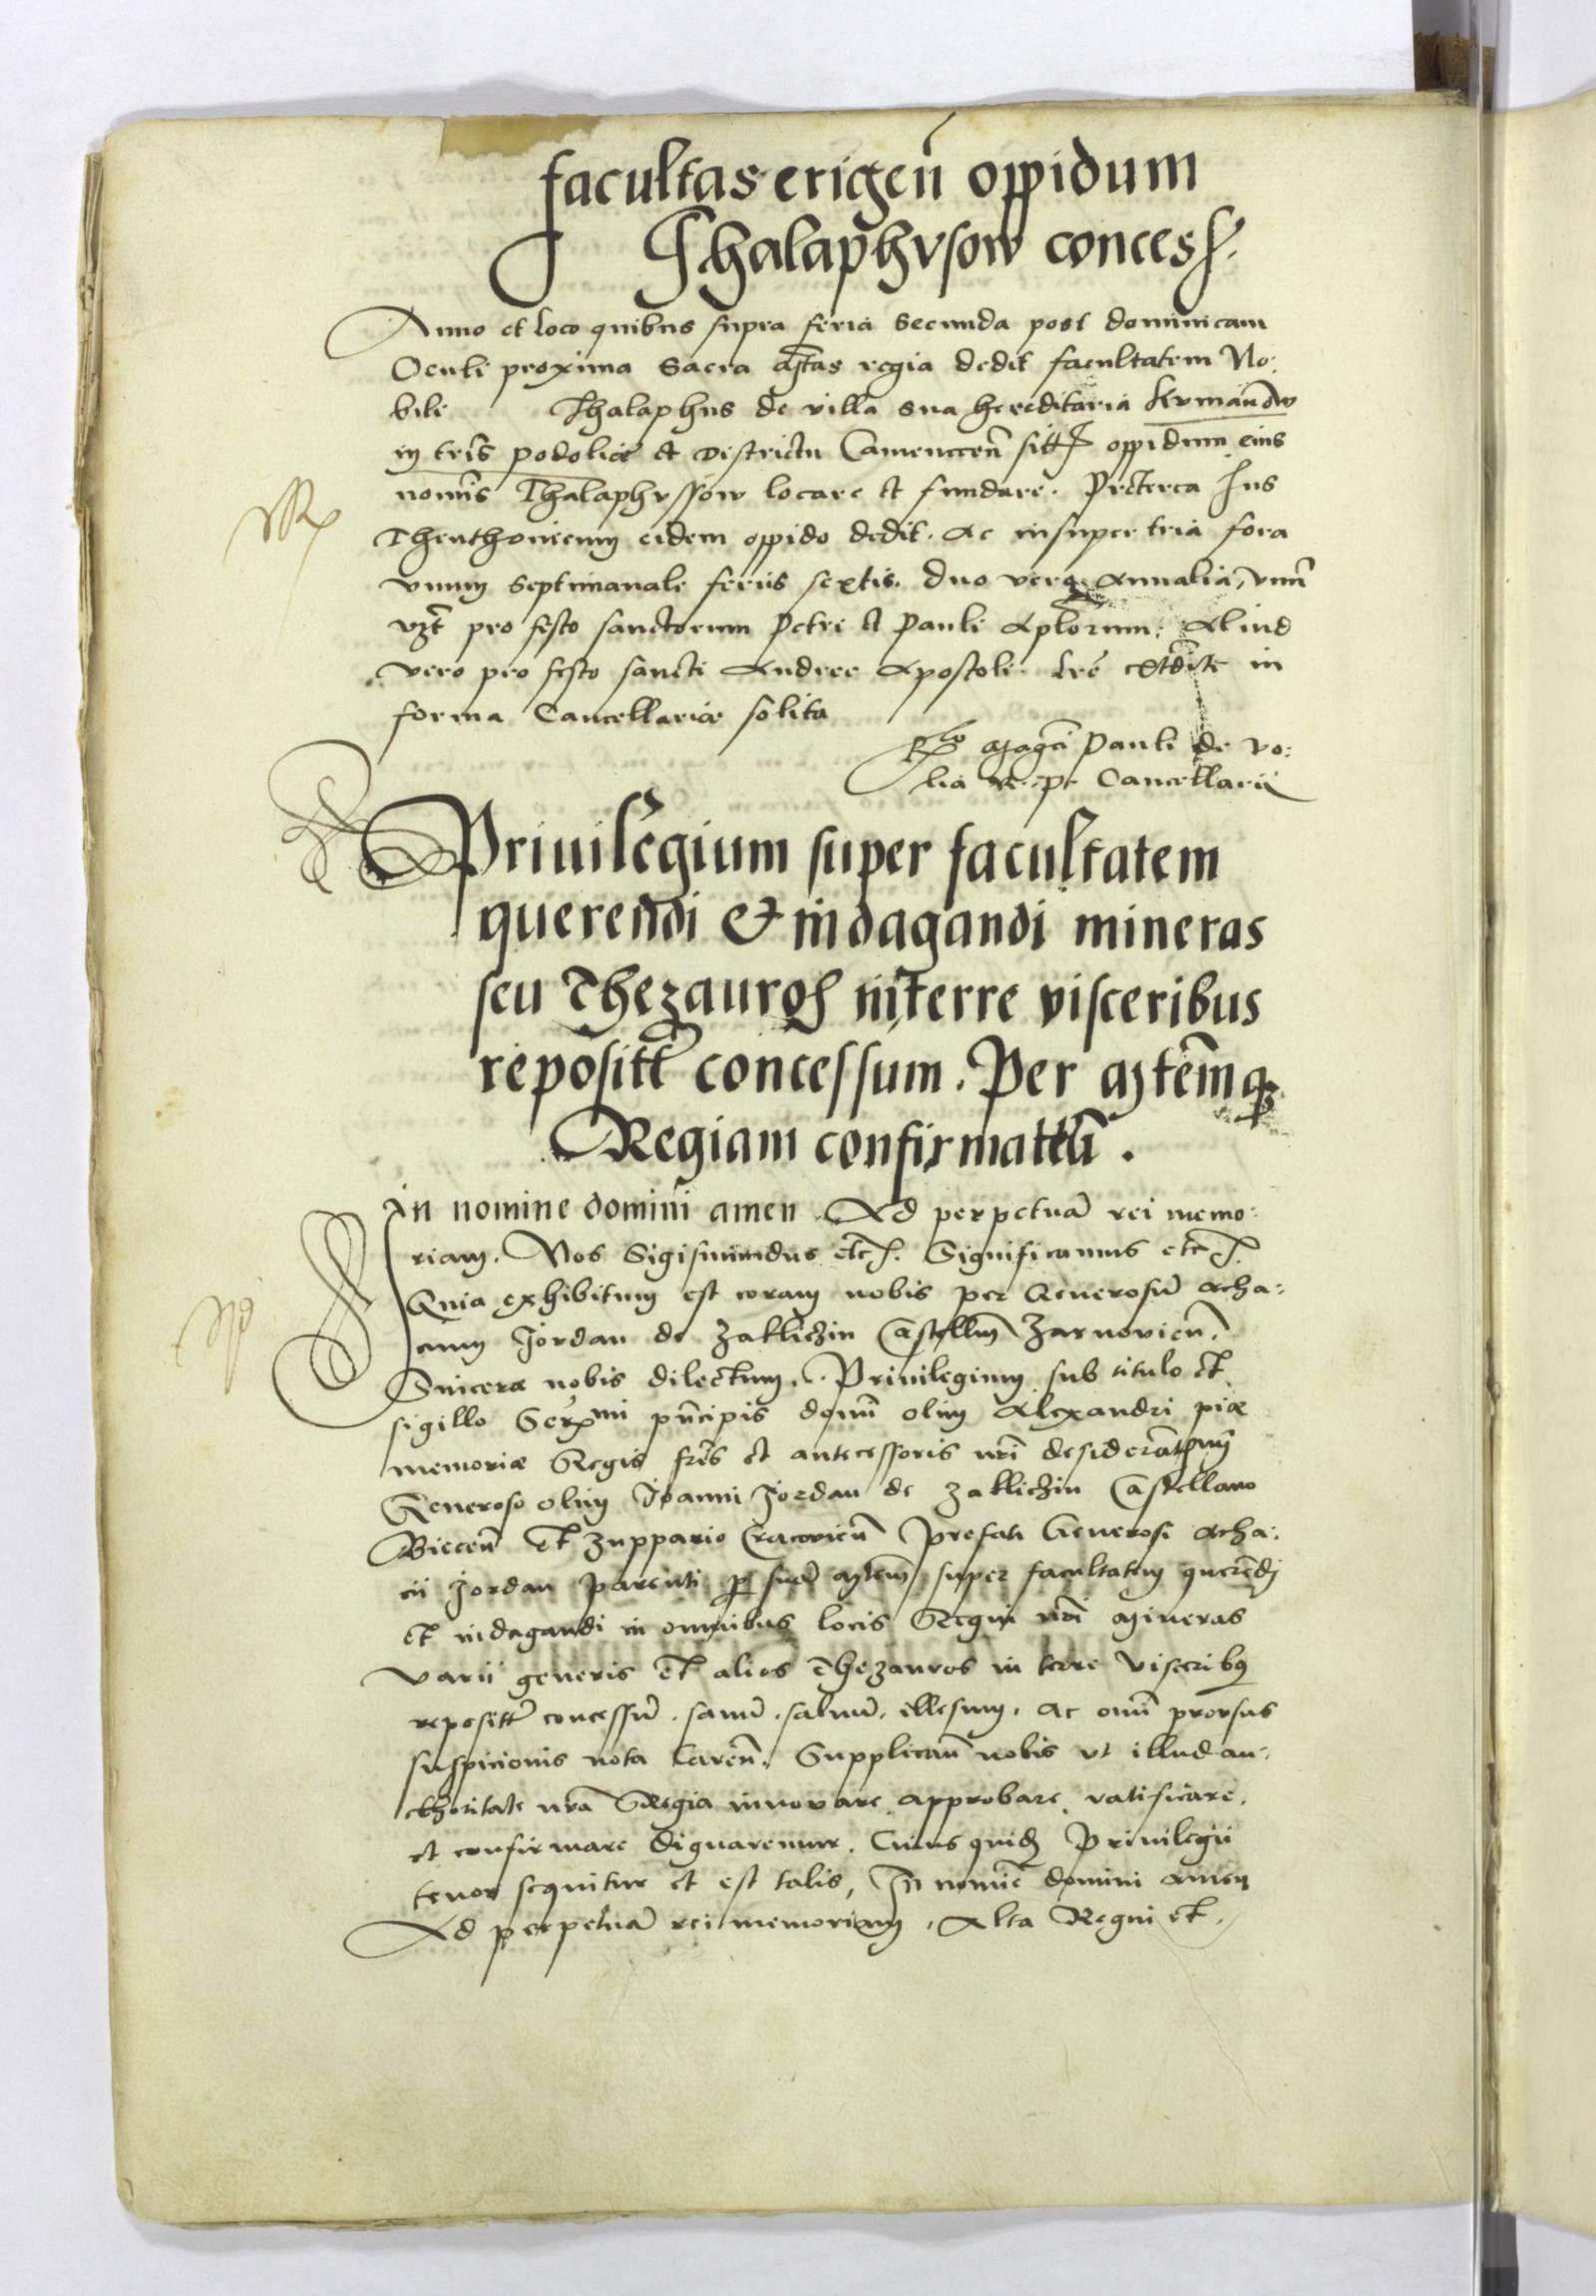 facultas erigen̄ oppidum
Thalaphvsow concess.
Anno et loco quibus supra feria secunda post dominicam
Oculi proxima Sacra Mtas regia dedit facultatem No:
bili Thalaphus de villa sua hereditaria Kvmanow
in tris podolie et districtu Camenecen̄ sitt oppidum eius
nomīs Thalaphvssow locare et fundare. Preterea Jus
Theuthonicum eidem oppido dedit. Ac insuper tria fora
vnum septimanale feriis sextis. duo vero Annalia, vnū
vzt pro festo sanctorum Petri et Pauli Aplorum; Aliud
vero pro festo sancti Andree Apostoli. Lrē in
forma Cancellarie solita
Rlo Magci Pauli de vo:
lia Cancellarii
Priuilegium super facultatem
querendi & indagandi mineras
seu Thezauros in terre visceribus
repositt concessum. Per Mtēmq3
Regiam confirmattū.
In nomine domini amen. Ad perpetuā rei memo:
riam. Nos Sigismundus etc. Significamus etc.
Quia exhibitum est coram nobis per Generosū Acha:
cium Jordan de Zaklichin Castellm Zarnovien̄.
Sincere nobis dilectum. Priuilegium sub titulo et
sigillo Serxmi prīcipis domī olim Alexandri pie
memorie Regis fris et antecessoris nri desideratmi
Generoso olim Joanni Jordan de Zaklichin Castellano
Biecen̄ et Zuppario Cracovien̄ Prefati Generosi Acha:
cii Jordan parenti p suā Mtēm super facultatem querēdi
et indagandi in omnibus locis Regni nri Mineras
varii generis et alios Thezauros in terre visceribus
repositt concessū. sanū. saluū. illesum. ac omī prorsus
suspicionis nota caren̄. Supplicaū nobis vt illud au:
cthoritate nrā Regia innovare, approbare, ratificare,
et confirmare dignaremur. Cuius quidē Priuilegii
tenor sequitur et est talis, In nomiē domini amen
Ad perpetuā rei memoriam. Alta Regni et.